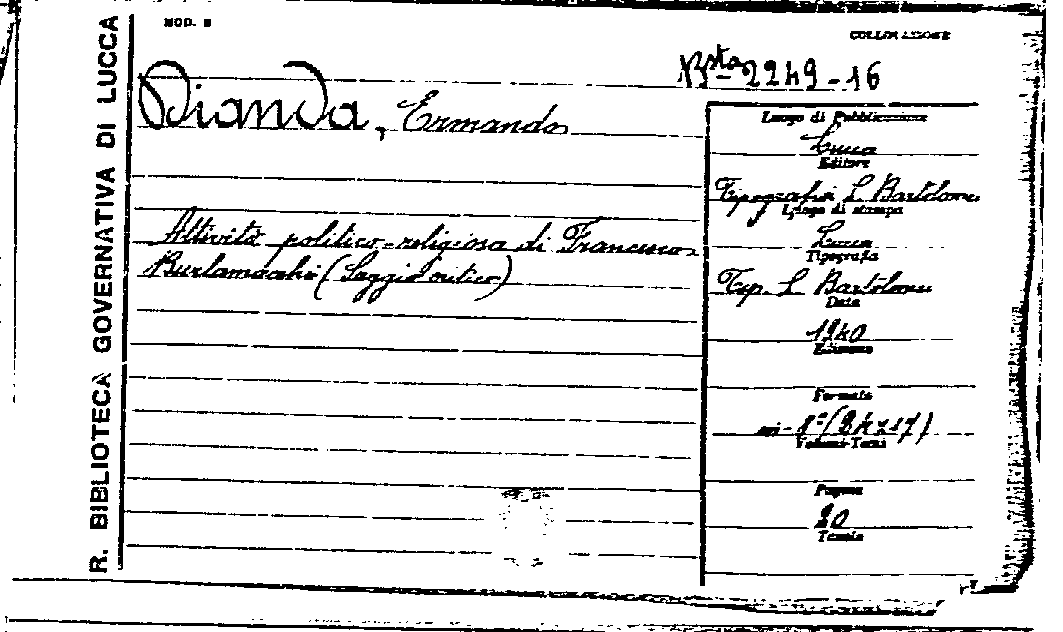 R. BIBLIOTECA GOVERNATIVA DI LUCCA
MOD. B
COLLOCAZIONE
Bsta 2249-16
Dianda, Ermando
Attività politico-religiosa di Francesco
Burlamacchi (Saggio critico)
Luogo di Pubblicazione
Lucca
Editore
Tipografia L. Bartolomei
Luogo di stampa
Lucca
Tipografia
Tip. L. Bartolomei
Data
1940
Edizione
Formato
in-8º (24x17)
Volumi-Tomi
Pagine
20
Tavole